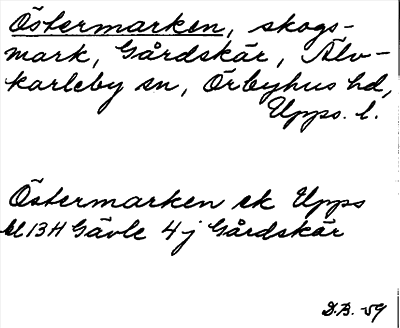 Östermarken, skogs-
mark, Gårdskär, Älv-
karleby sn, Örbyhus hd,
Upps. l.
Östermarken ek Upps
bl 13H Gävle 4j Gårdskär
D.B. -59